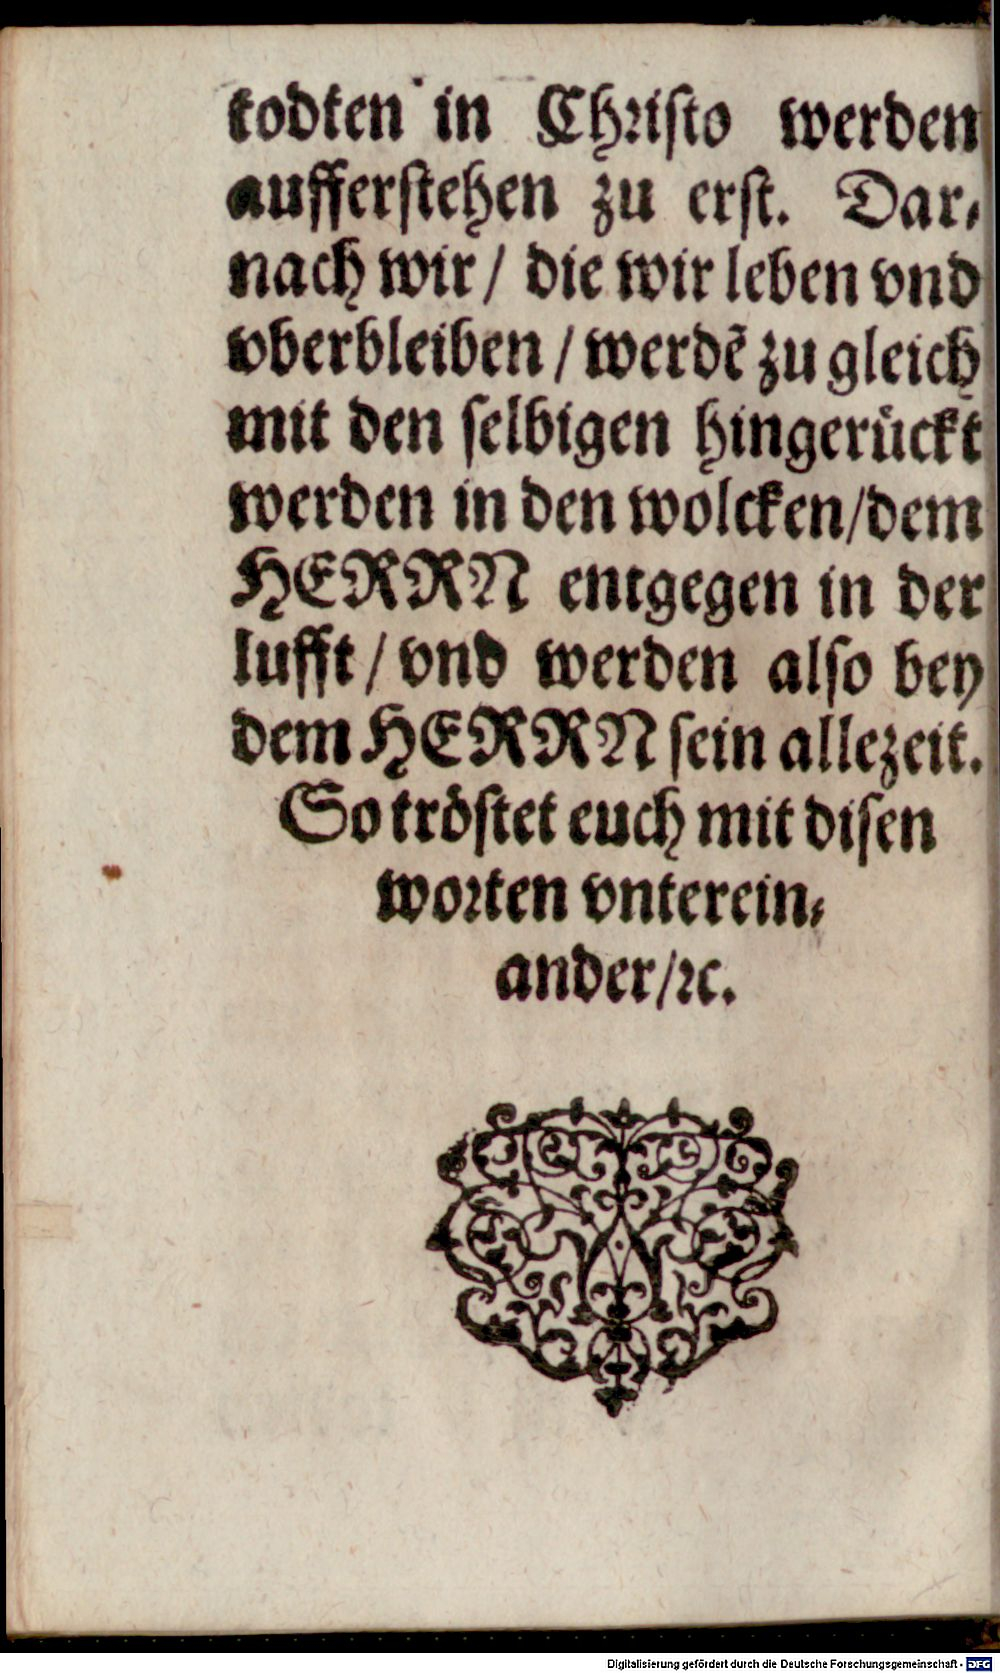 todten in Christo werden
aufferstehen zu erst. Dar⸗
nach wir / die wir leben vnd
vberbleiben / werdē zu gleich
mit den selbigen hingerückt
werden in den wolcken/dem
HERRN entgegen in der
lufft / vnd werden also bey
dem HERRN sein allezeit.
So tröstet euch mit disen
worten vnterein⸗
ander/ꝛc.
Digitalisierung gefördert durch die Deutsche Forschungsgemeinschaft - DFG